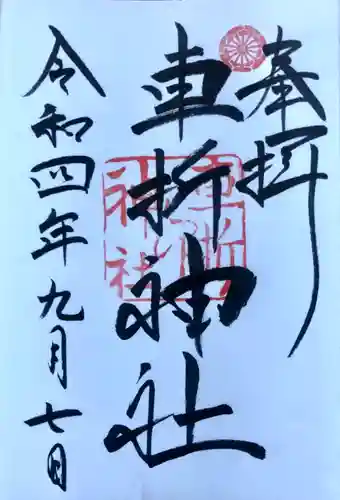 奉拝
車折神社
車折
神社
令和四年九月七日